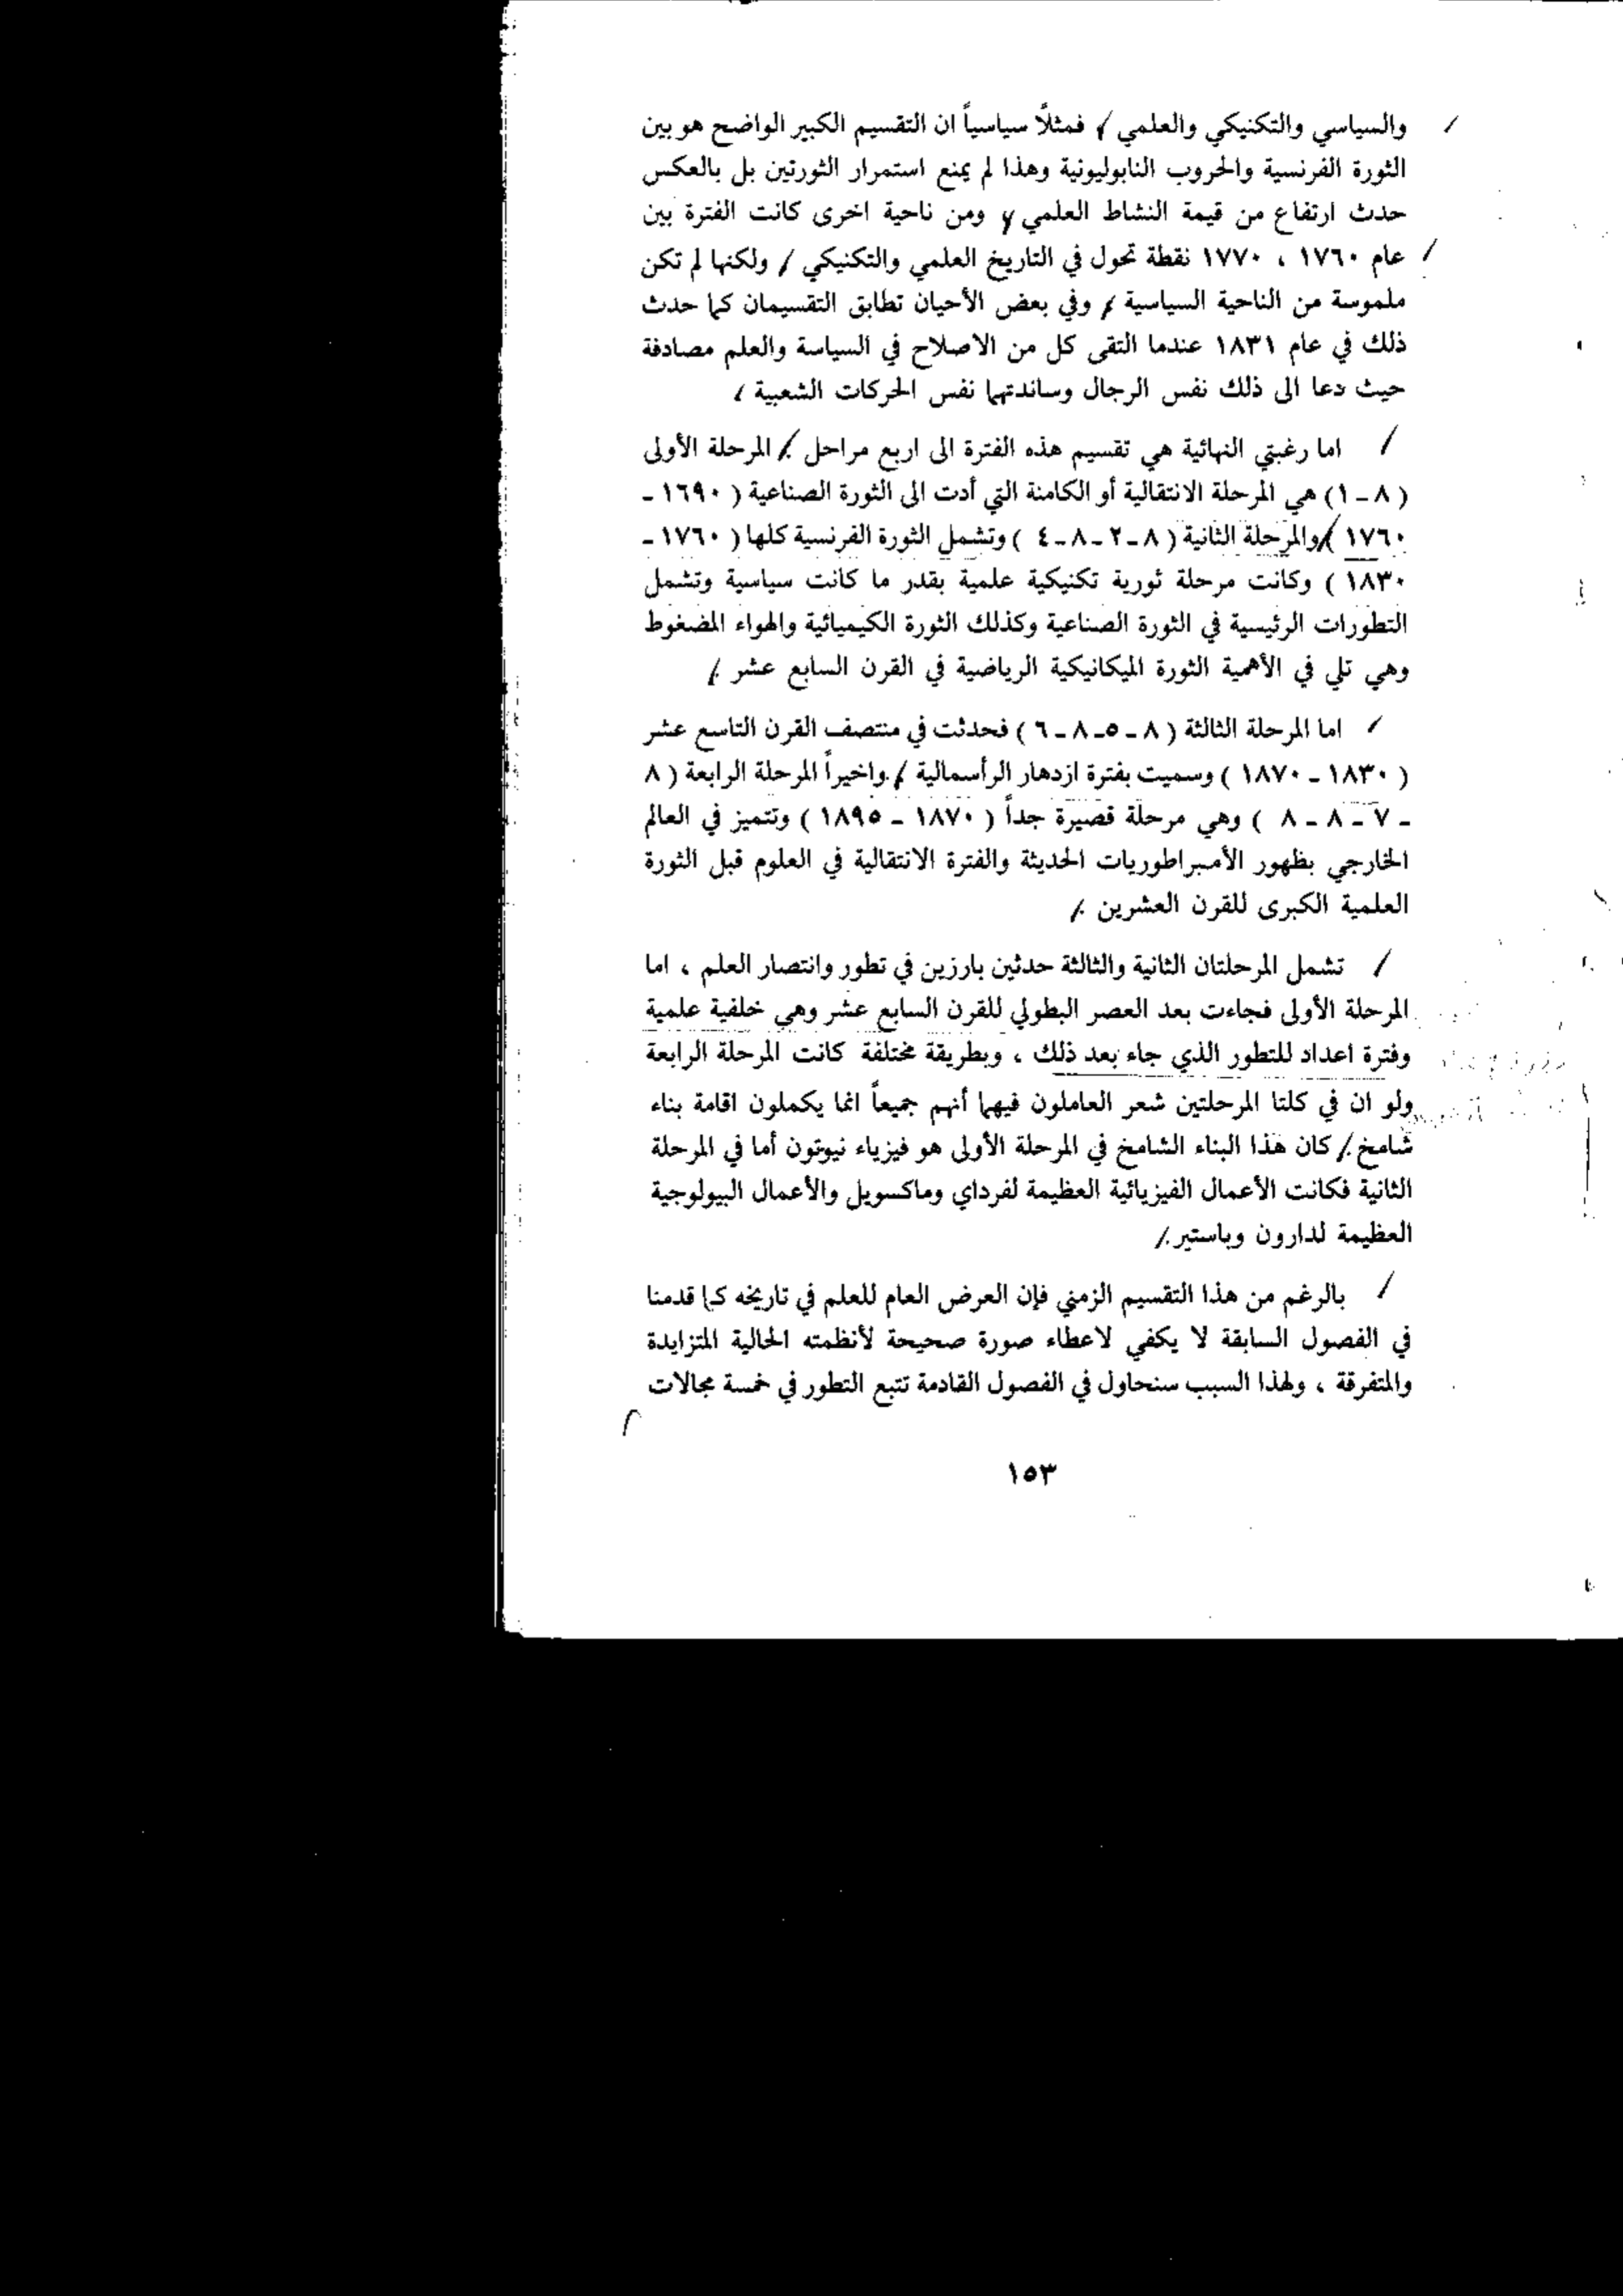 والسياسي والتكنيكي والعلمي / فمثلاً سياسياً ان التقسيم الكبير الواضح هو بين
الثورة الفرنسية والحروب النابوليونية وهذا لم يمنع استمرار الثورتين بل بالعكس
حدث ارتفاع من قيمة النشاط العلمي / ومن ناحية اخرى كانت الفترة بين
عام ١٧٦٠ ، ١٧٧٠ نقطة تحول في التاريخ العلمي والتكنيكي / ولكنها لم تكن
ملموسة من الناحية السياسية / وفي بعض الأحيان تطابق التقسيمان كما حدث
ذلك في عام ١٨٣١ عندما التقى كل من الاصلاح في السياسة والعلم مصادفة
حيث دعا الى ذلك نفس الرجال وساندتهما نفس الحركات الشعبية /
/ اما رغبتي النهائية هي تقسيم هذه الفترة الى اربع مراحل / المرحلة الأولى
( ٨ – ١) هي المرحلة الانتقالية أو الكامنة التي أدت الى الثورة الصناعية ( ١٦٩٠ –
١٧٦٠ ) / والمرحلة الثانية ( ٨ – ٢ – ٨ – ٤ ) وتشمل الثورة الفرنسية كلها ( ١٧٦٠ –
١٨٣٠ ) وكانت مرحلة ثورية تكنيكية علمية بقدر ما كانت سياسية وتشمل
التطورات الرئيسية في الثورة الصناعية وكذلك الثورة الكيميائية والهواء المضغوط
وهي تلي في الأهمية الثورة الميكانيكية الرياضية في القرن السابع عشر /.
/ اما المرحلة الثالثة ( ٨ – ٥ – ٨ – ٦ ) فحدثت في منتصف القرن التاسع عشر
( ١٨٣٠ – ١٨٧٠ ) وسميت بفترة ازدهار الرأسمالية /. واخيراً المرحلة الرابعة ( ٨
– ٧ – ٨ – ٨ ) وهي مرحلة قصيرة جداً ( ١٨٧٠ – ١٨٩٥ ) وتتميز في العالم
الخارجي بظهور الأمبراطوريات الحديثة والفترة الانتقالية في العلوم قبل الثورة
العلمية الكبرى للقرن العشرين /.
/ تشمل المرحلتان الثانية والثالثة حدثين بارزين في تطور وانتصار العلم ، اما
المرحلة الأولى فجاءت بعد العصر البطولي للقرن السابع عشر وهي خلفية علمية
وفترة اعداد للتطور الذي جاء بعد ذلك ، وبطريقة مختلفة كانت المرحلة الرابعة
ولو ان في كلتا المرحلتين شعر العاملون فيهما أنهم جميعاً انما يكملون اقامة بناء
شامخ /. كان هذا البناء الشامخ في المرحلة الأولى هو فيزياء نيوتون أما في المرحلة
الثانية فكانت الأعمال الفيزيائية العظيمة لفرداي وماكسويل والأعمال البيولوجية
العظيمة لدارون وباستير /.
/ بالرغم من هذا التقسيم الزمني فإن العرض العام للعلم في تاريخه كما قدمنا
في الفصول السابقة لا يكفي لاعطاء صورة صحيحة لأنظمته الحالية المتزايدة
والمتفرقة ، ولهذا السبب سنحاول في الفصول القادمة تتبع التطور في خمسة مجالات
١٥٣